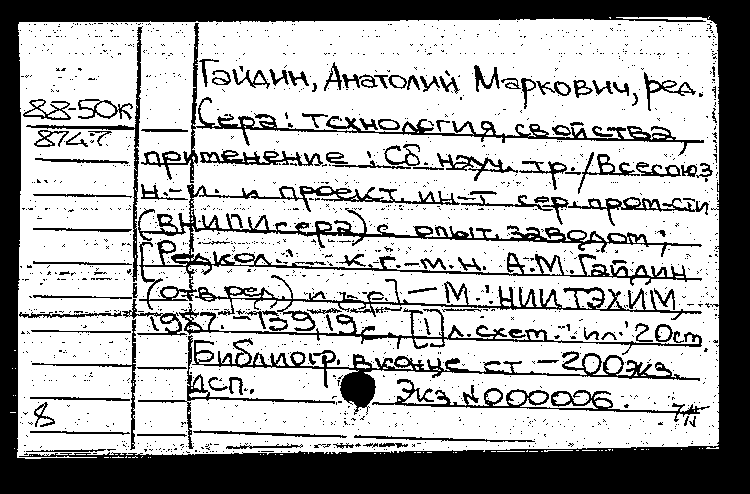 Гайдин, Анатолий Маркович, ред.
88-50к
Сера: технология, свойства,
874.?
применение : Сб. науч. тр./Всесоюз
н.-и. и проект. ин-т сер. пром-сти
(ВНИПИсера) с опыт. заводом;
[Редкол.: к.г.-м.н. А.М.Гайдин
(отв.ред) и др]. — М.: НИИТЭХИМ,
1987. - 159,19 с., [1] л.схем.: ил; 20см.
Библиогр. в конце ст - 200экз.
ДСП. Экз. № 000006.
8